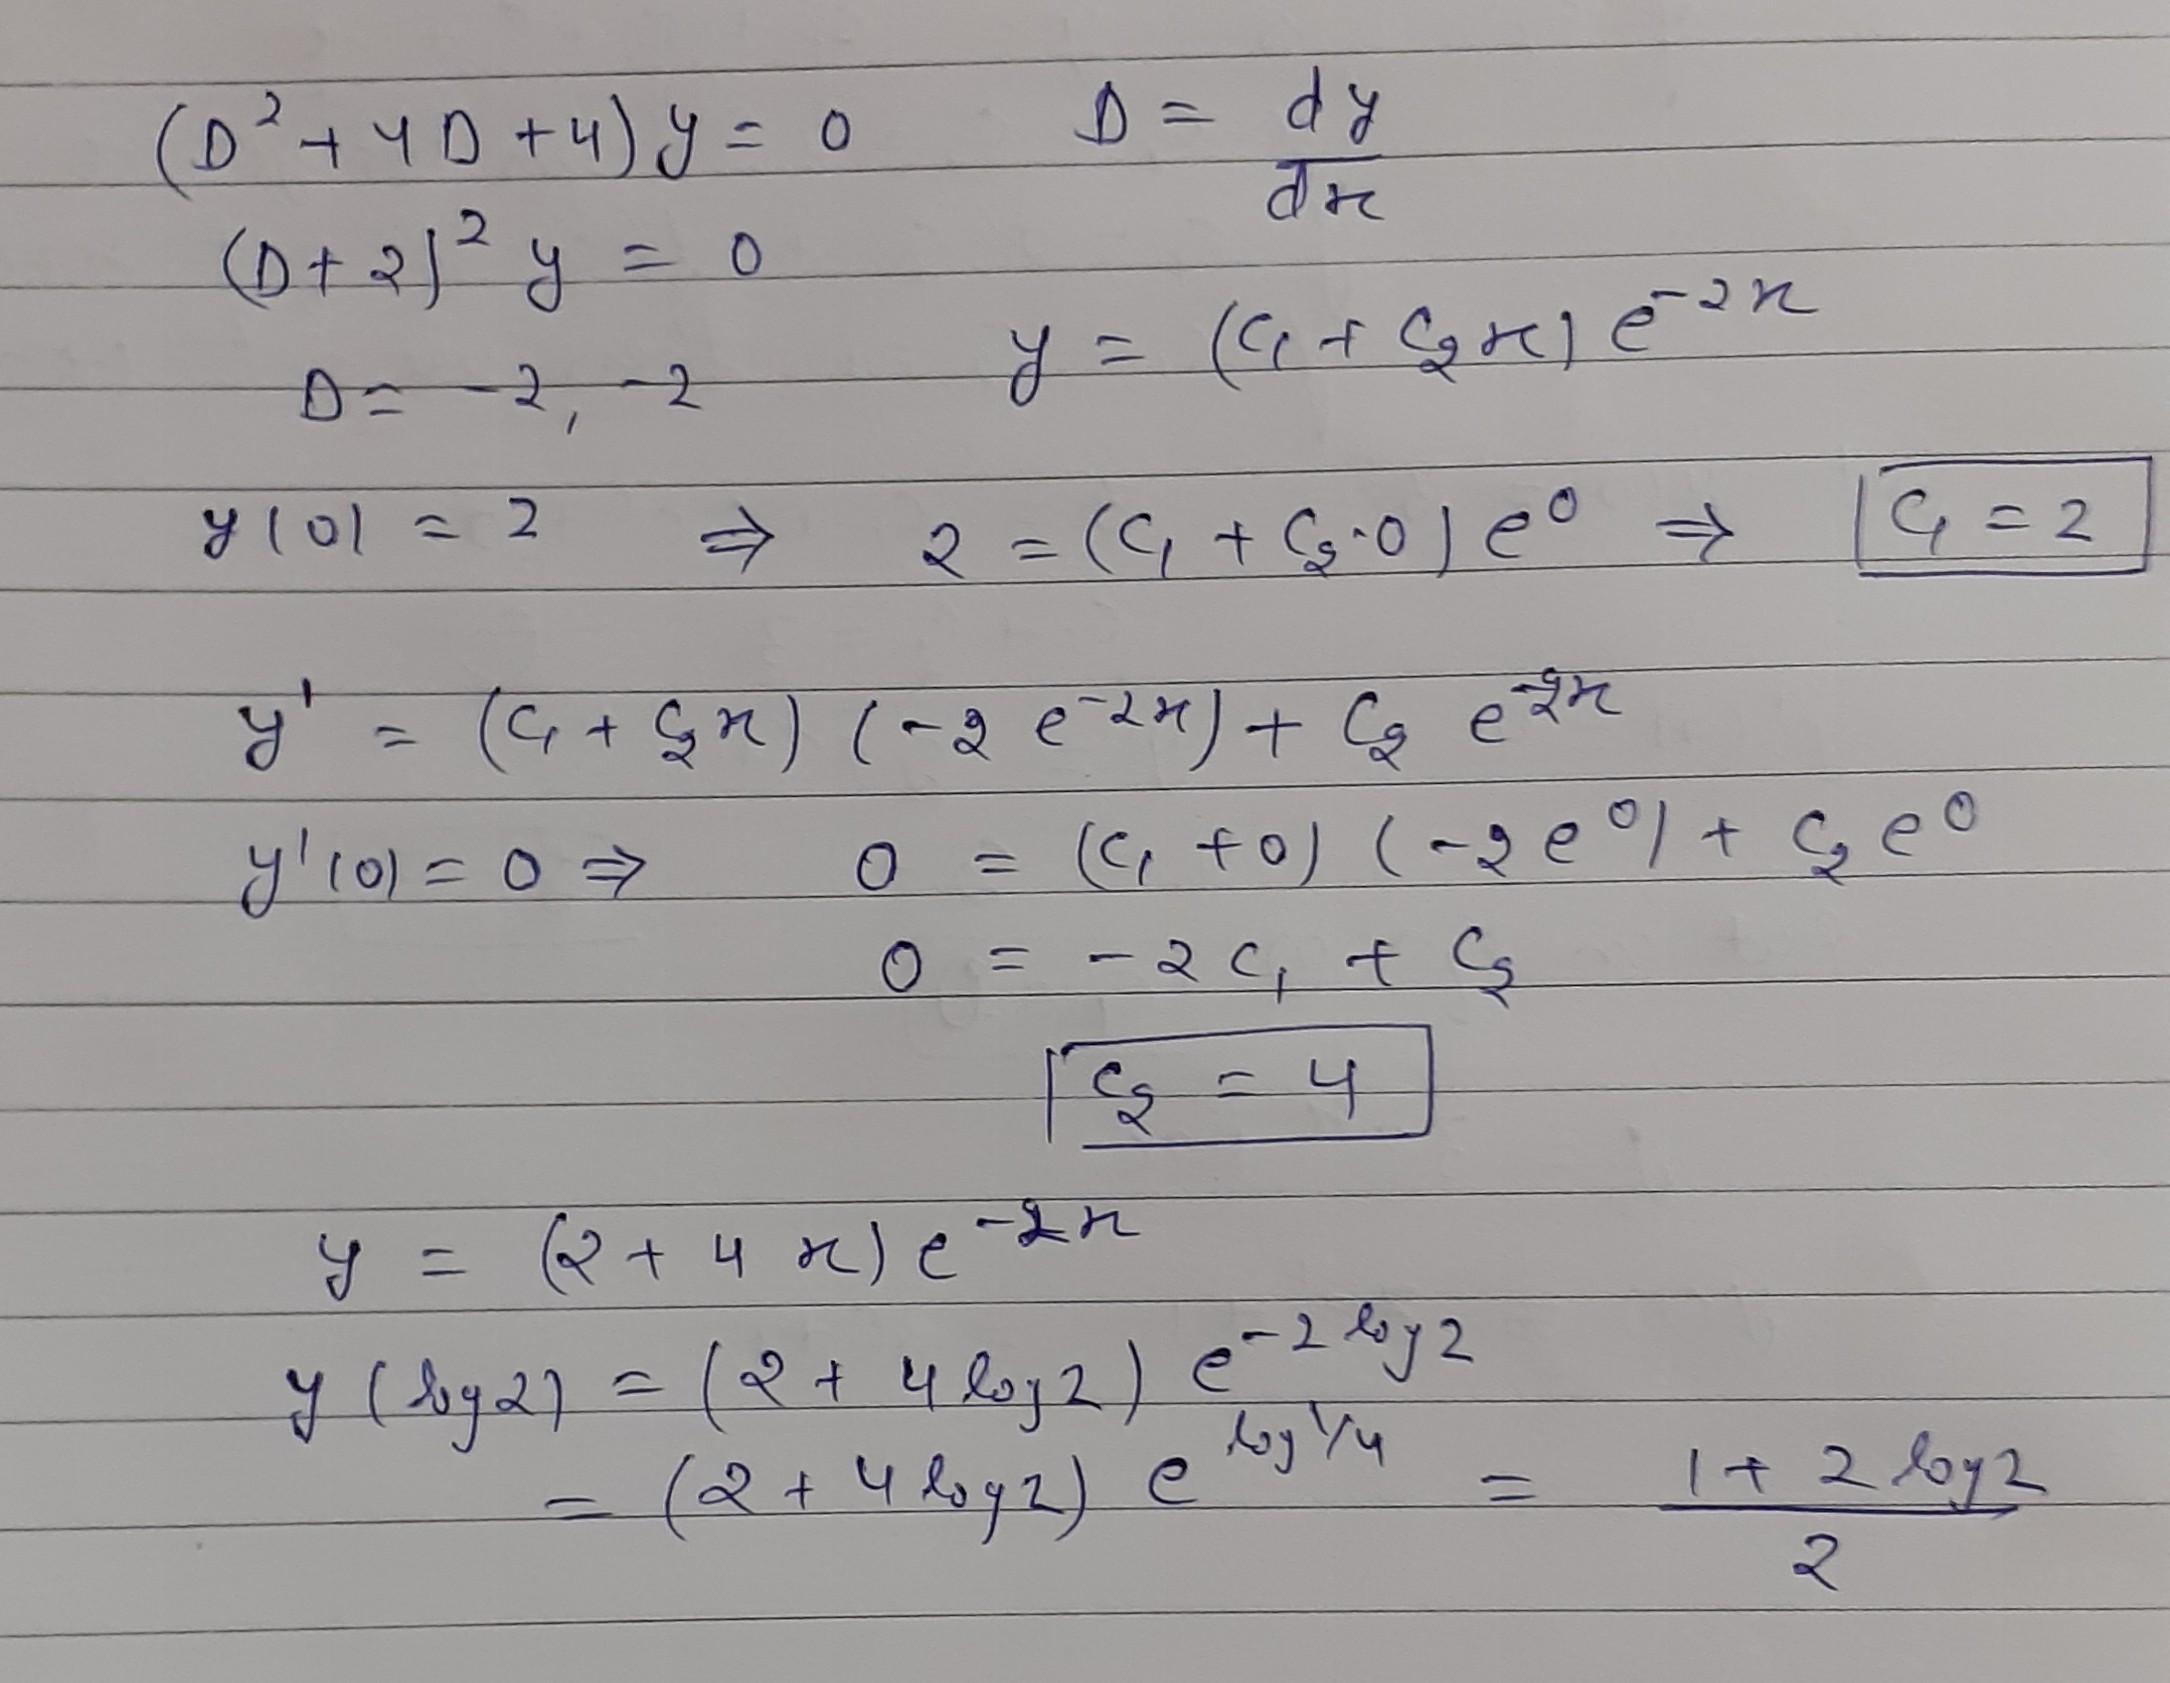 (D² + 4D + 4) y = 0    D = dy/dx
(D + 2)² y = 0
D = -2, -2    y = (C₁ + C₂x) e^(-2x)
y(0) = 2 ⇒ 2 = (C₁ + C₂·0) e⁰ ⇒ C₁ = 2
y' = (C₁ + C₂x) (-2 e^(-2x)) + C₂ e^(-2x)
y'(0) = 0 ⇒ 0 = (C₁ + 0) (-2e⁰) + C₂ e⁰
0 = -2C₁ + C₂
C₂ = 4
y = (2 + 4x) e^(-2x)
y(log2) = (2 + 4 log2) e^(-2 log2)
= (2 + 4 log2) e^(log 1/4) = (1 + 2 log2)/2